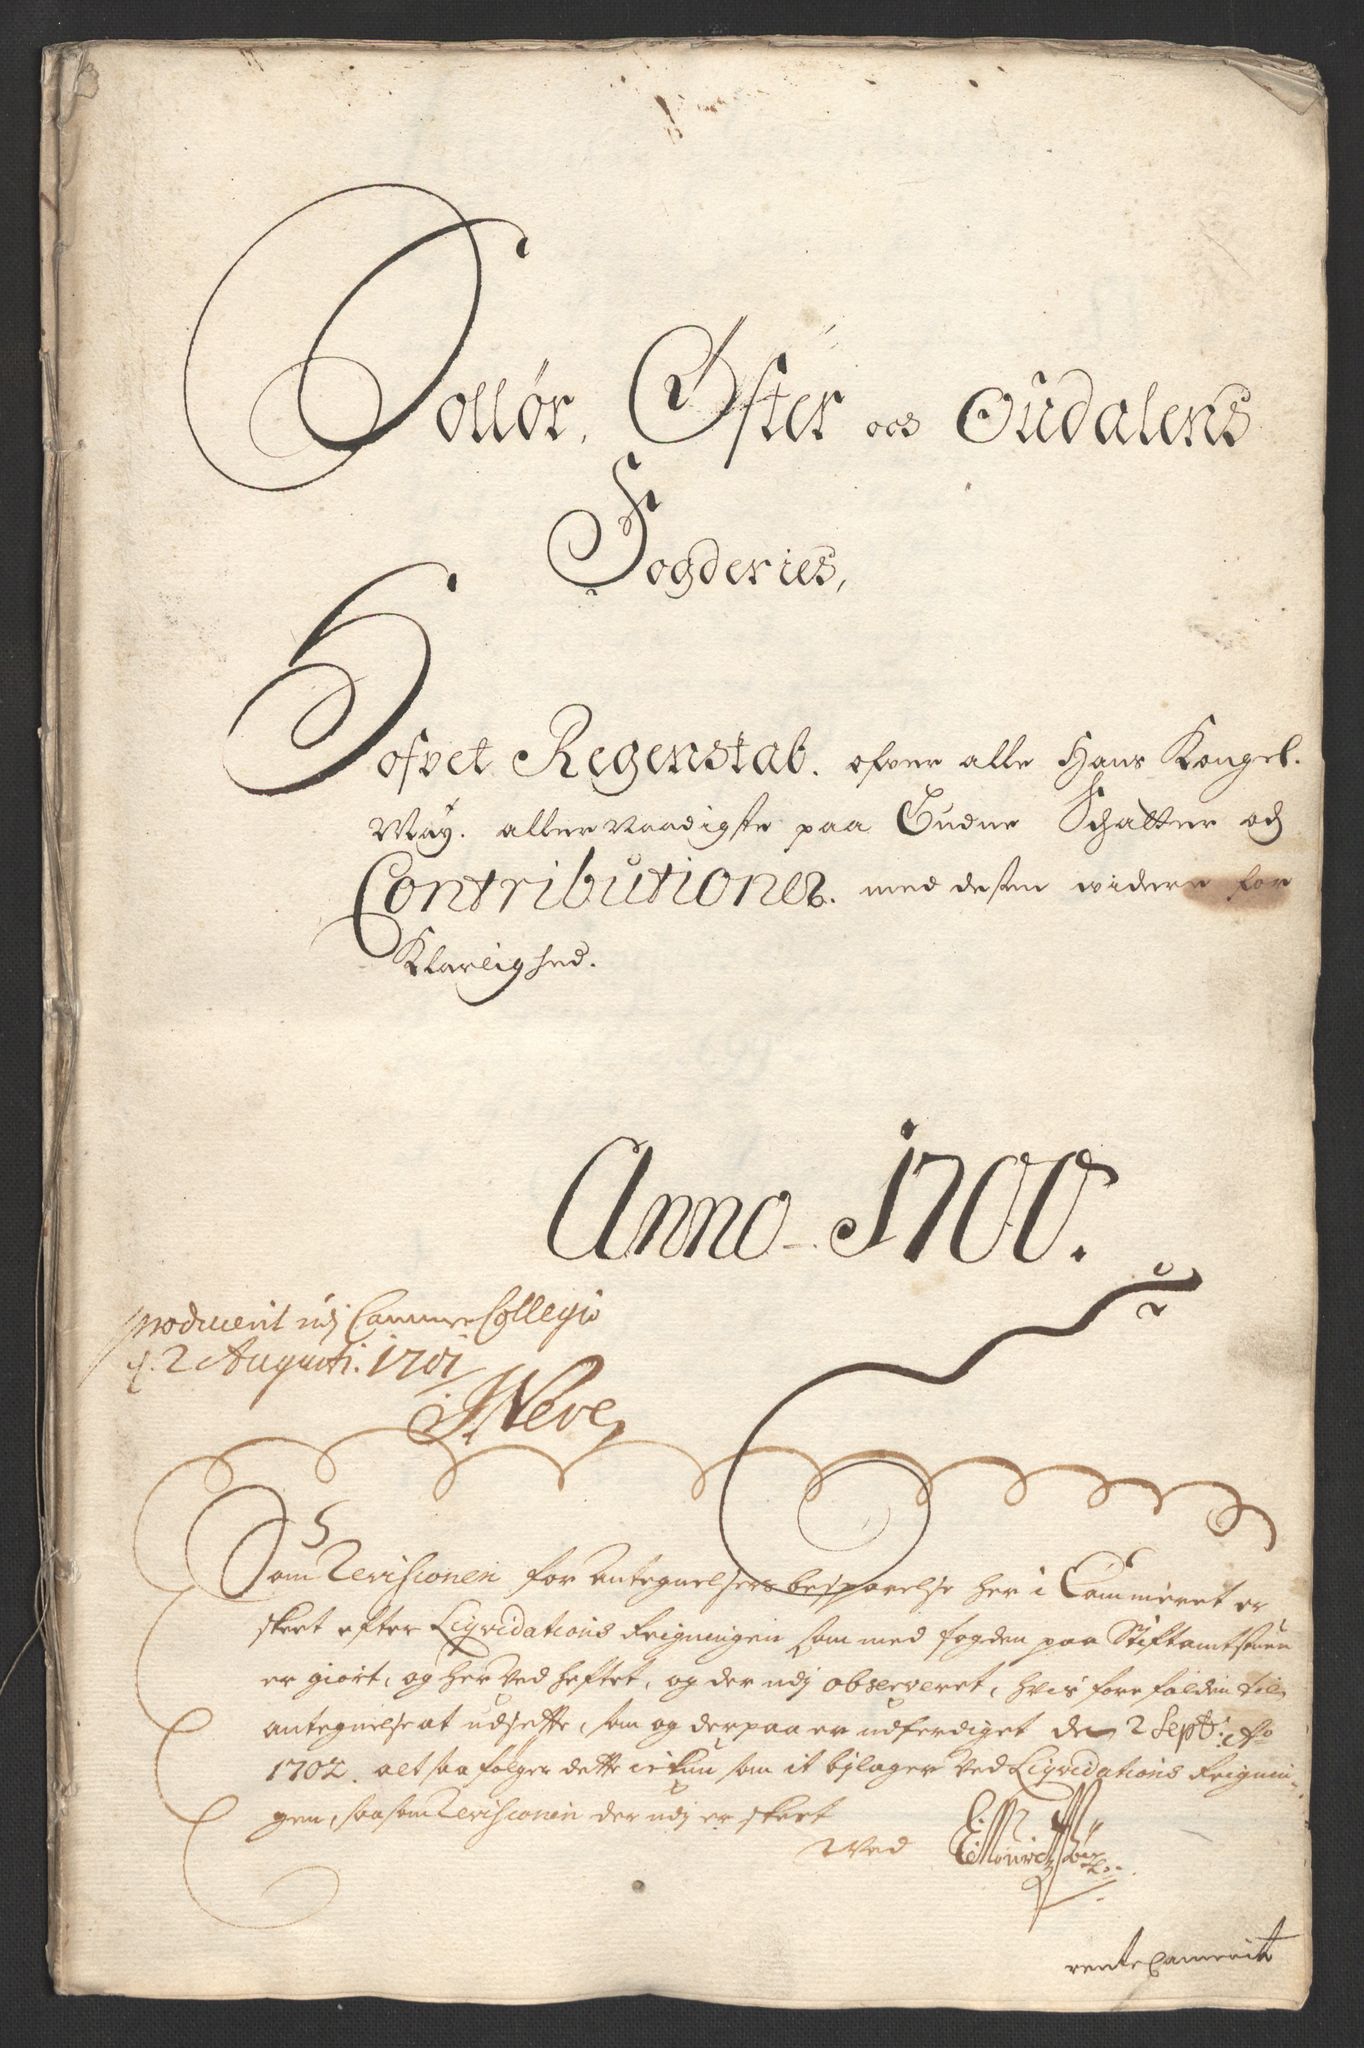 Sollør, Øster och Oudalens
Fogderies,
Hofvet Regenskab. ofver alle Hans Kongel.
May. allernaadigste paa budne Schatter och
Contributioner. med desen videre for
Klarlighed.
Anno 1700.
producerit udj CammerCollegio
d. 2 Augusti. 1701
Som Revisionen for antegnelsers besparelse her i Cammeret er
skeet efter Liqvidations Reigningen som med fogden paa Stiftamtstuen
er giort, og her ved heftet, og der udj observeret, hvis fore falden til
antegnelse at udsette, som og derpaa er udferdiget den 2 Sept: Ao
1702. alt saa følger dette ickun som it bylager ved Liqvidations Reignin-
gen, saasom Revisionen der udj er skeet
Ved
rente Camerit